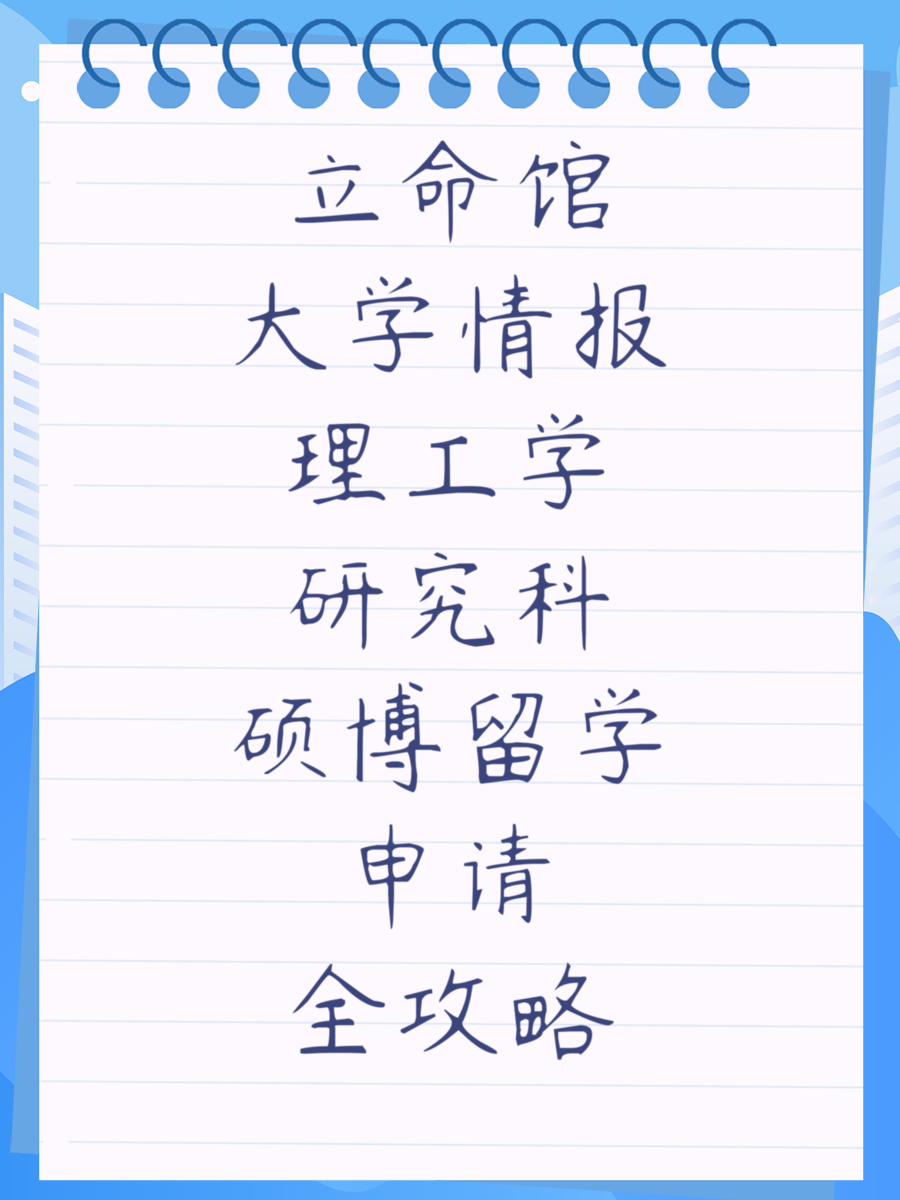 立命馆
大学情报
理工学
研究科
硕博留学
申请
全攻略